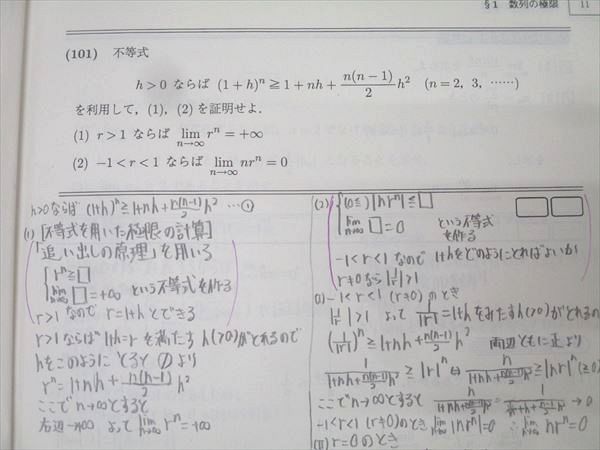 §1 数列の極限 11
(101) 不等式
h>0 ならば (1+h)^n ≧ 1+nh+\frac{n(n-1)}{2}h^2 (n=2, 3, ……)
を利用して，(1)，(2) を証明せよ．
(1) r>1 ならば \lim_{n→∞} r^n=+∞
(2) -1<r<1 ならば \lim_{n→∞} nr^n=0
h>0ならば (1+h)^n≧1+nh+\frac{n(n-1)}{2}h^2 …①
(1) [不等式を用いた極限の計算]
「追い出しの原理」を用いる
r^n≧□
\lim_{n→∞}□=+∞ という不等式を作る
r>1なので r=1+hとできる
r>1ならば1+h=rを満たすh(>0)がとれるので
hをこのようにとると①より
r^n≧1+nh+\frac{n(n-1)}{2}h^2
ここでn→∞とすると
右辺→∞ よって\lim_{n→∞}r^n=+∞
(2) (0≦)|nr^n|≦□
\lim_{n→∞}□=0 という不等式
を作る
-1<r<1なので 1+hをどのようにとればよいか
r≠0なら|\frac{1}{r}|>1
(i) -1<r<1 (r≠0)のとき
|\frac{1}{r}|>1 よって \frac{1}{|r|}=1+hをみたすh(>0)がとれるの
(\frac{1}{|r|})^n≧1+nh+\frac{n(n-1)}{2}h^2 両辺ともに正より
\frac{1}{1+nh+\frac{n(n-1)}{2}h^2}≧|r|^n ⇔ \frac{n}{1+nh+\frac{n(n-1)}{2}h^2}≧|nr^n|(≧0)
ここでn→∞とすると \frac{n}{1+nh+\frac{n(n-1)}{2}h^2}=\frac{1}{\frac{1}{n}+h+\frac{n-1}{2}h^2}→0
-1<r<1(r≠0)のとき \lim_{n→∞}|nr^n|=0 ∴\lim_{n→∞}nr^n=0
(ii) r=0のとき